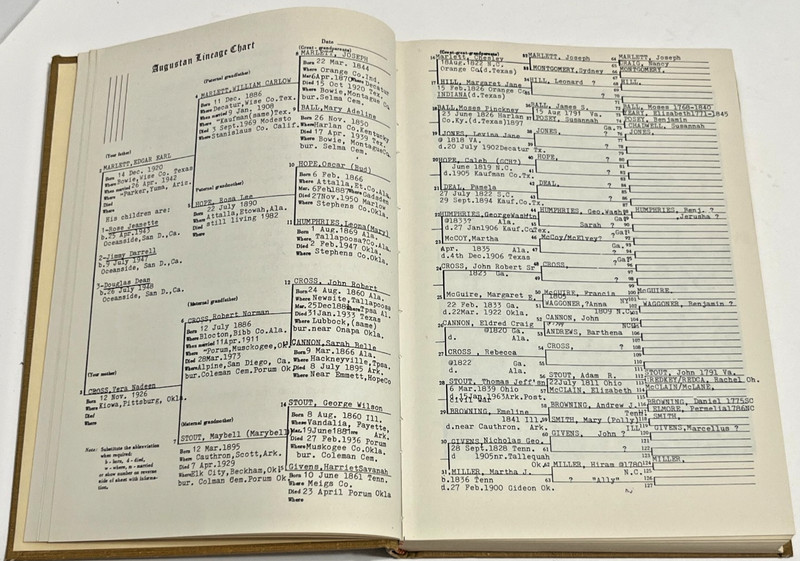 Augustan Lineage Chart
Date
(Your father)
2 MARLETT, EDGAR EARL
Born 14 Dec. 1920
Where Bowie, Wise Co. Texas
When married 26 Apr. 1942
Where "Parker, Yuma, Aris.
Died
Where
His children are:
1-Rose Jeanette
b.25 Apr. 1943
Oceanside, San D., Ca.
2-Jimmy Darrell
b.9 July 1947
Oceanside, San D., Ca.
3-Douglas Dean
b.28 July 1948
Oceanside, San D., Ca.
(Your mother)
3 CROSS, Tera Nadeen
Born 12 Nov. 1926
Where Kiowa, Pittsburg, Okla.
Note: Substitute the abbreviation
when required:
b - born, d - died,
w - where, m - married
or show number on reverse
side of sheet with information.
(Paternal grandfather)
4 MARLETT, WILLIAM CARLOW
Born 11 Dec. 1886
Where Decatur, Wise Co, Tex.
When married 9 Jan. 1908
Where "Kaufman(same) Tex.
Died 3 Sept. 1969 Modesto
Where Stanislaus Co. Calif.
(Paternal grandmother)
5 HOPE, Rosa Lee
Born 22 July 1890
Where Attalla, Etowah, Ala.
Died still living 1982
(Maternal grandfather)
6 CROSS, Robert Norman
Born 12 July 1886
Where Blocton, Bibb Co. Ala.
When married 11 Apr. 1911
Where "Porum, Musckogee, Ok.
Died 28 Mar. 1973
Where Alpine, San Diego, Ca.
bur. Coleman Cem. Porum Ok.
(Maternal grandmother)
7 STOUT, Maybell (Marybell)
Born 12 Mar. 1895
Where Cauthron, Scott, Ark.
Died 7 Apr. 1929
Where Elk City, Beckham, Ok.
bur. Colman Cem. Porum Ok.
(Great-grandparents)
8 MARLETT, JOSEPH
Born 22 Mar. 1844
Where Orange Co. Ind.
Mar. 6 Apr. 1870 Where Decatur
Died 15 Oct 1920 Tex.
Where Bowie, Montague Co.
bur. Selma Cem.
9 BALL, Mary Adeline
Born 26 Nov. 1850
Where Harlan Co. Kentucky
Died 17 Apr. 1939 Tex.
Where Bowie, Montague Co.
bur. Selma Cem.
10 HOPE, Oscar (Bus)
Born 6 Feb. 1866
Where Attalla, Et. Co. Ala.
Mar. 6 Feb 1887 Where Gadsden
Died 27 Nov. 1950 Marlow
Where Stephens Co. Okla.
11 HUMPHRIES, Leona (Mary)
Born 1 Aug. 1869 Ala.
Where Tallapoosa Co. Ala.
Died 2 Feb. 1947 Okla.
Where Stephens Co. Okla.
12 CROSS, John Robert
Born 24 Aug. 1860 Ala.
Where Newsite, Tallapoosa
Mar. 25 Dec 1881 Where Tpsa Al.
Died 31 Jan. 1933 Texas
Where Lubbock, (same)
bur. near Onapa Okla.
13 CANNON, Sarah Belle
Born 9 Mar. 1866 Ala.
Where Hackneyville, Tpsa.
Died 8 July 1895 Ark.
Where Near Emmett, Hope Co
14 STOUT, George Wilson
Born 8 Aug. 1860 Ill.
Where Vandalia, Payette,
Mar. 19 June 1881 Where Ark.
Died 27 Feb. 1936 Porum
Where Muskogee Co. Okla.
bur. Coleman Cem.
15 Givens, Harriet Savanah
Born 10 June 1861 Tenn.
Where Meigs Co.
Died 23 April Porum Okla
Where
(Great-great-grandparents)
16 Marlett, Chesley
18 Aug. 1822 N.C.
Orange Co (d. Texas)
17 HILL, Margaret Jane
15 Feb. 1826 Orange Co
INDIANA (d. Tex.)
18 BALL, Moses Pinckney
23 June 1826 Harlan
Co. Ky. (d. Texas) 1897
19 JONES, Levina Jane
@ 1818 VA.
d. 20 July 1902 Decatur Tx.
20 HOPE, Caleb (CCH?)
June 1819 N.C.
d. 1905 Kaufman Co. Tx.
21 DEAL, Pamela
27 July 1822 S.C.
29 Sept. 1894 Kauf. Co. Tx.
22 HUMPHRIES, George Washin
@ 1833? Al
d. 27 Jan 1906 Kauf. Co Tex
23 McCOY, Martha
Apr. 1835 Ala.
d. 4th Dec. 1906 Texas
24 CROSS, John Robert Sr
1823 Ga.
25 McGuire, Margaret E.
22 Feb. 1833 Ga.
d. 22 Mar. 1922 Okla.
26 CANNON, Eldred Craig
@ 1820 Ga.
d. Ala.
27 CROSS, Rebecca
@ 1822 Ga.
d. Ala.
28 STOUT, Thomas Jeff'sn
6 Mar. 1839 Ohio
29 BROWNING, Emeline
1841 Ill
d. near Cauthron, Ark.
30 GIVENS, Nicholas Geo.
28 Sept. 1828 Tenn.
d 1905 nr. Tallequah Ok
31 MILLER, Martha J.
b. 1836 Tenn
d. 27 Feb. 1900 Gideon Ok.
32 MARLETT, Joseph
33 MONTGOMERY, Sydney
34 HILL, Leonard ?
36 BALL, James S.
15 Aug 1791 Va.
37 POSEY, Susannah
38 JONES,
40 HOPE,
42 DEAL, ?
44 HUMPHRIES, Geo. Wash
45 Sarah ? Ga
46 McCoy/McKlvey?
48 CROSS,
50 McGUIRE, Francis
51 WAGGONER, ?Anna NY
1809 N.C.
52 CANNON, John
53 ANDREWS, Barthena
54 CROSS, ?
56 STOUT, Adam R.
22 July 1811 Ohio
57 McCLAIN, Elizabeth
58 BROWNING, Andrew J.
Tenn
59 SMITH, Mary (Polly)
60 GIVENS, John ?
62 MILLER, Hiram @1780
N.C.
63 ? "Ally"
64 MARLETT, Joseph
65 CRAIG, Nancy
66 MONTGOMERY,
HILL,
BALL, Moses 1768-1840
HEART, Elizabeth 1771-1845
POSEY, Benjamin
CHADWELL, Susannah
JONES,
HUMPHRIES, Benj. ?
,Jerusha ?
McGUIRE,
WAGGONER, Benjamin ?
STOUT, John 1791 Va.
(REDKEY/REDCA, Rachel Oh.
McCLAIN/McLANE,
BROWNING, Daniel 1775 SC
ELMORE, Permelia 1786 NC
SMITH,
GIVENS, Marcellus ?
MILLER,